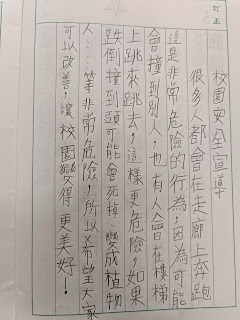 訂正
校園安全宣導
很多人都會在走廊上奔跑
這是非常危險的行為，因為可能
會撞到別人，也有人會在樓梯
上跳來跳去，這樣更危險，如果
跌倒撞到頭可能會死掉、變成植物
人……等非常危險，所以希望大家
可以改善，讓校園變得更美好！